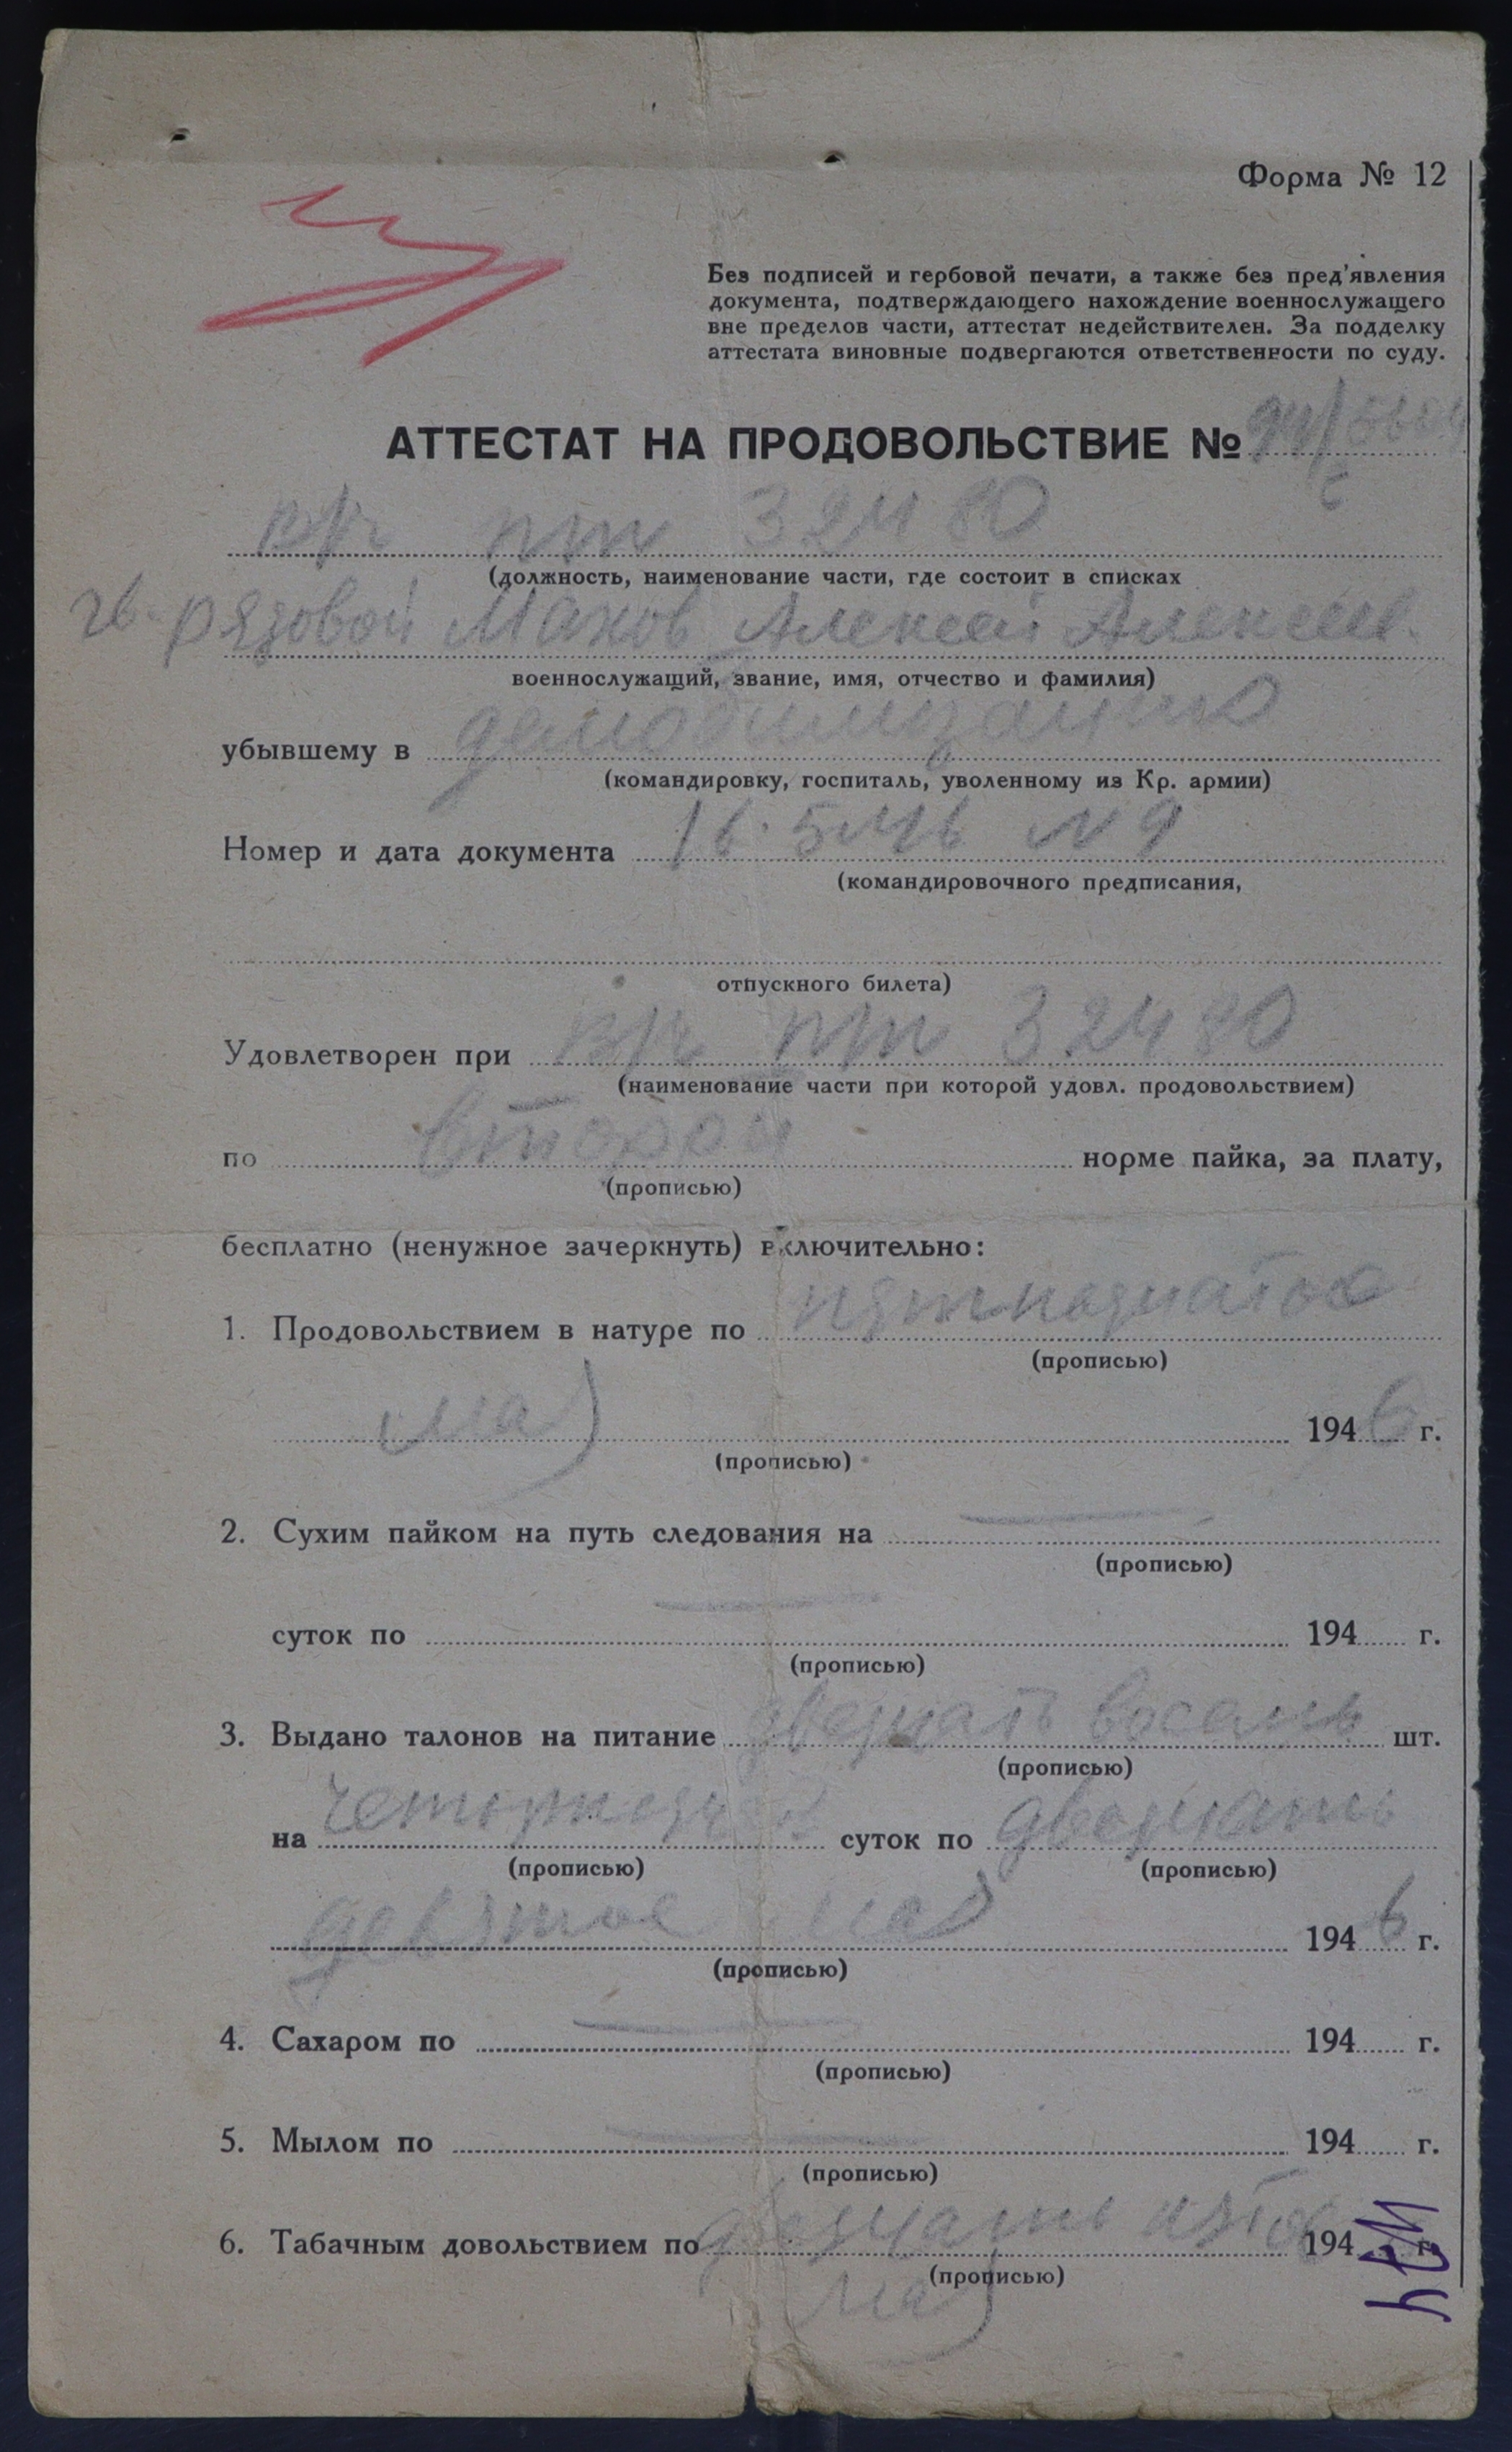 Форма № 12
Без подписей и гербовой печати, а также без пред'явления
документа, подтверждающего нахождение военнослужащего
вне пределов части, аттестат недействителен. За подделку
аттестата виновные подвергаются ответственности по суду.
АТТЕСТАТ НА ПРОДОВОЛЬСТВИЕ №
в/ч пп 32480
(должность, наименование части, где состоит в списках
гв. рядовой Махов Алексей Алексеев.
военнослужащий, звание, имя, отчество и фамилия)
убывшему в демобилизацию
(командировку, госпиталь, уволенному из Кр. армии)
Номер и дата документа 16.5.46 N 9
(командировочного предписания,
отпускного билета)
Удовлетворен при в/ч пп 32480
(наименование части при которой удовл. продовольствием)
по второй норме пайка, за плату,
(прописью)
бесплатно (ненужное зачеркнуть) включительно:
1. Продовольствием в натуре по пятнадцатое
(прописью)
мая 1946 г.
(прописью)
2. Сухим пайком на путь следования на —
(прописью)
суток по — 194 г.
(прописью)
3. Выдано талонов на питание двадцать восемь шт.
(прописью)
на суток по двадцать
(прописью) (прописью)
девятое мая 1946 г.
(прописью)
4. Сахаром по — 194 г.
(прописью)
5. Мылом по — 194 г.
(прописью)
6. Табачным довольствием по двадцать пятое 194 г.
(прописью)
мая